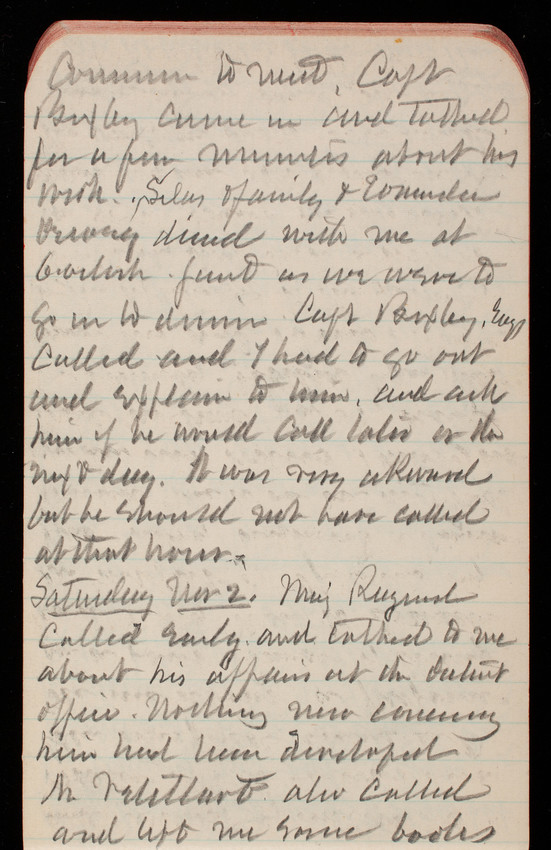 Common to meet. Capt
Bixby came in and talked
for a few minutes about his
work. Silas & family &
dined with me at
6 o'clock. Just as we were to
go in to dinner Capt Bixby, Eng,
called and I had to go out
and explain to him, and ask
him if he would call later or the
next day. It was very akward
but he should not have called
at that hour.
Saturday Nov 2. Maj Raymond
called early and talked to me
about his affairs at the
office. Nothing new concerning
him had been developed
Mr also called
and left me some books